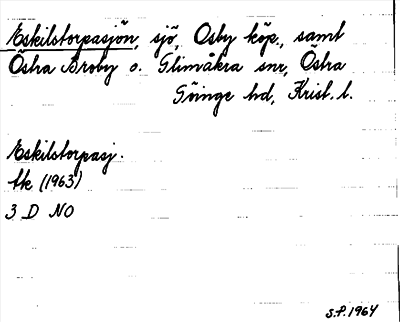 Eskilstorpasjön, sjö, Osby köp., samt
Östra Broby o. Glimåkra snr, Östra
Göinge hd, Krist. l.
Eskilstorpasj.
tk (1963)
3 D NO
S.P. 1964